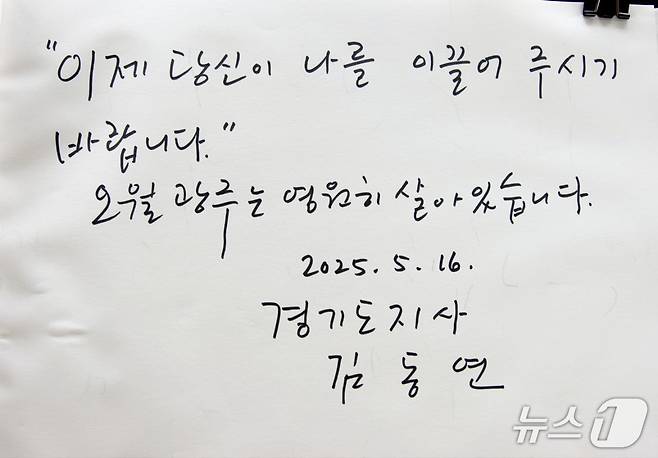 "이제 당신이 나를 이끌어 주시기
바랍니다."
오월 광주는 영원히 살아있습니다.
2025. 5. 16.
경기도지사
김 동 연
뉴스1